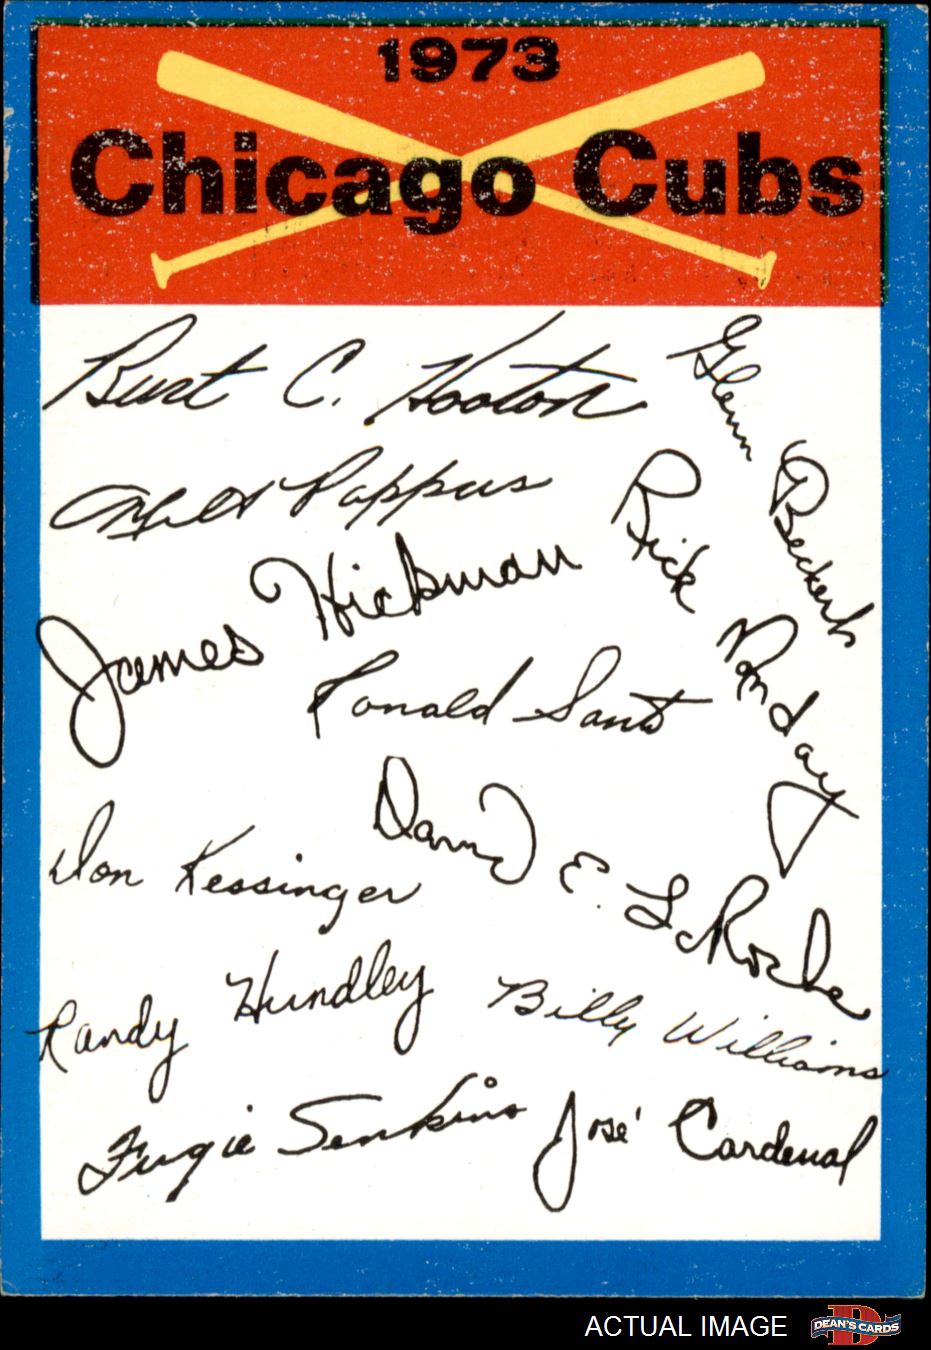 1973
Chicago Cubs
Burt C. Hooton
Glenn Beckert
Milt Pappas
Rick Monday
James Hickman
Ronald Santo
David E. LaRoche
Don Kessinger
Randy Hundley
Billy Williams
Fergie Jenkins
José Cardenal
ACTUAL IMAGE
DEAN'S CARDS